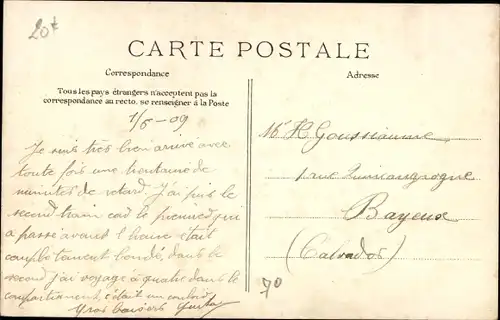 20t
CARTE POSTALE
Correspondance
Adresse
Tous les pays étrangers n'acceptent pas la
correspondance au recto, se renseigner à la Poste
1/6-09
Je suis très bien arrivé avec
toute fois une trentaine de
minutes de retard. J'ai pris le
second train car le premier qui
a passé avant l'heure était
complètement bondé, dans le
second j'ai voyagé à quatre dans le
compartiment, c'était un
Gros baisers
H Goussiaume
1 rue Quincangrogne
Bayeux
(Calvados)
70